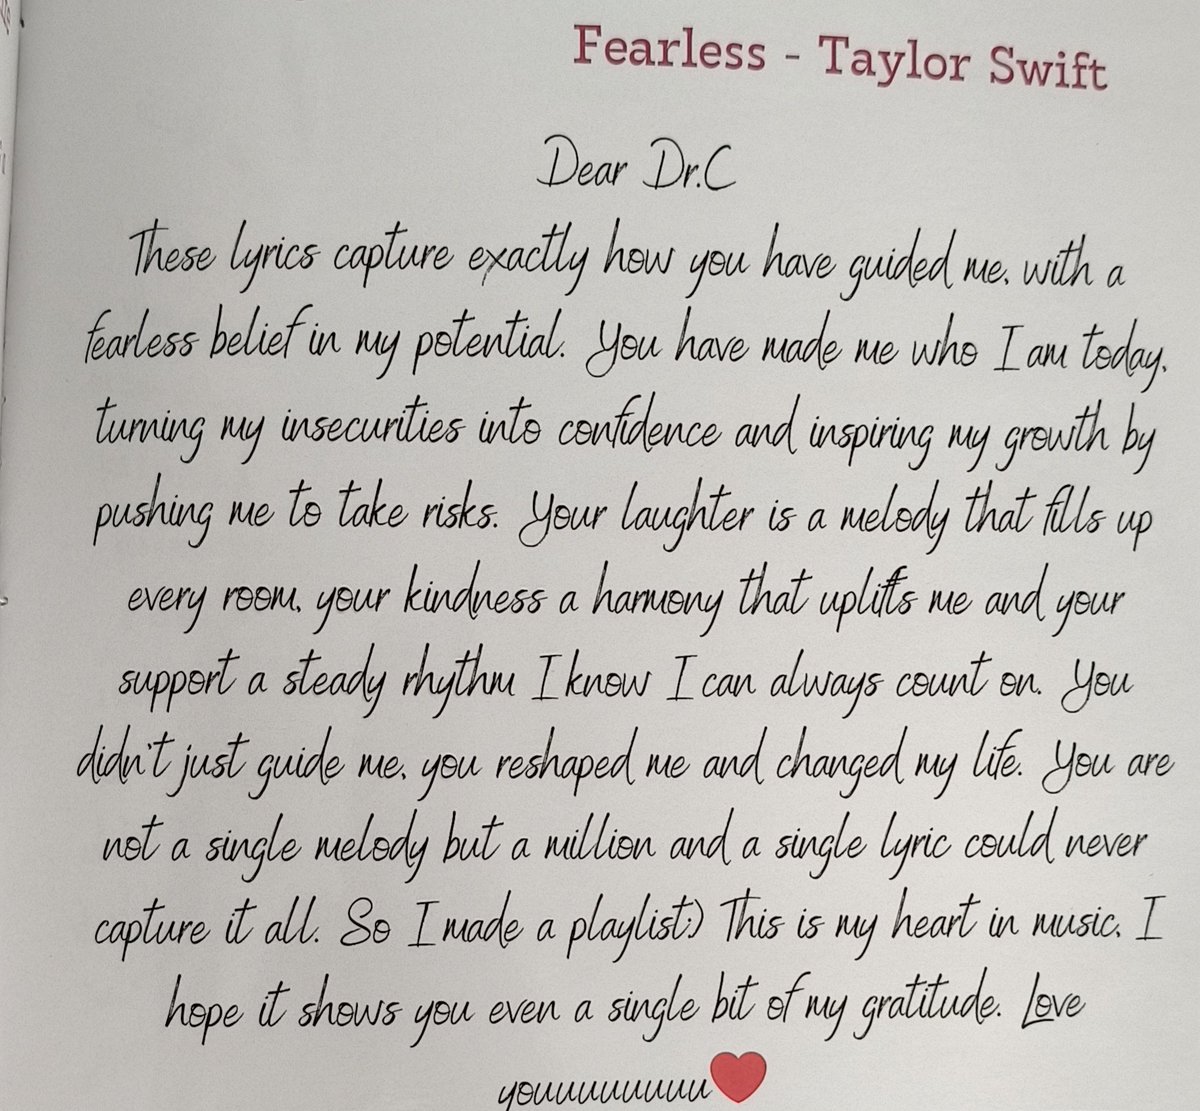 Fearless - Taylor Swift
Dear Dr.C
These lyrics capture exactly how you have guided me, with a
fearless belief in my potential. You have made me who I am today,
turning my insecurities into confidence and inspiring my growth by
pushing me to take risks. Your laughter is a melody that fills up
every room, your kindness a harmony that uplifts me and your
support a steady rhythm I know I can always count on. You
didn't just guide me, you reshaped me and changed my life. You are
not a single melody but a million and a single lyric could never
capture it all. So I made a playlist:) This is my heart in music, I
hope it shows you even a single bit of my gratitude. Love
youuuuuuuuu❤️